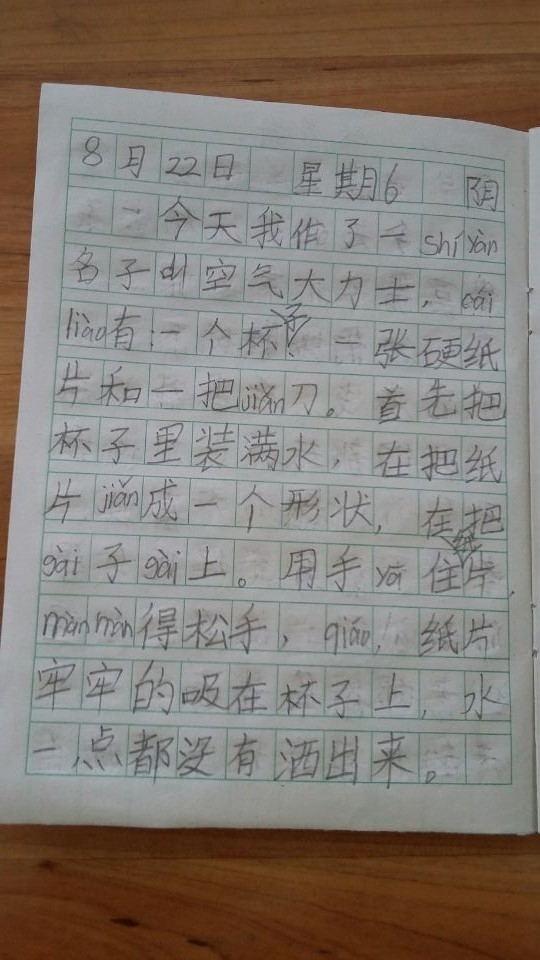 8月22日 星期6 阴
今天我作了一shí yàn
名子di空气大力士，cái
liào有：一个杯子、一张硬纸
片和一把jiǎn刀。首先把
杯子里装满水，在把纸
片jiǎn成一个形状，在把
gài子gài上。用手yā住纸片，
màn màn得松手，qiáo，纸片
牢牢的吸在杯子上，水
一点都没有洒出来。